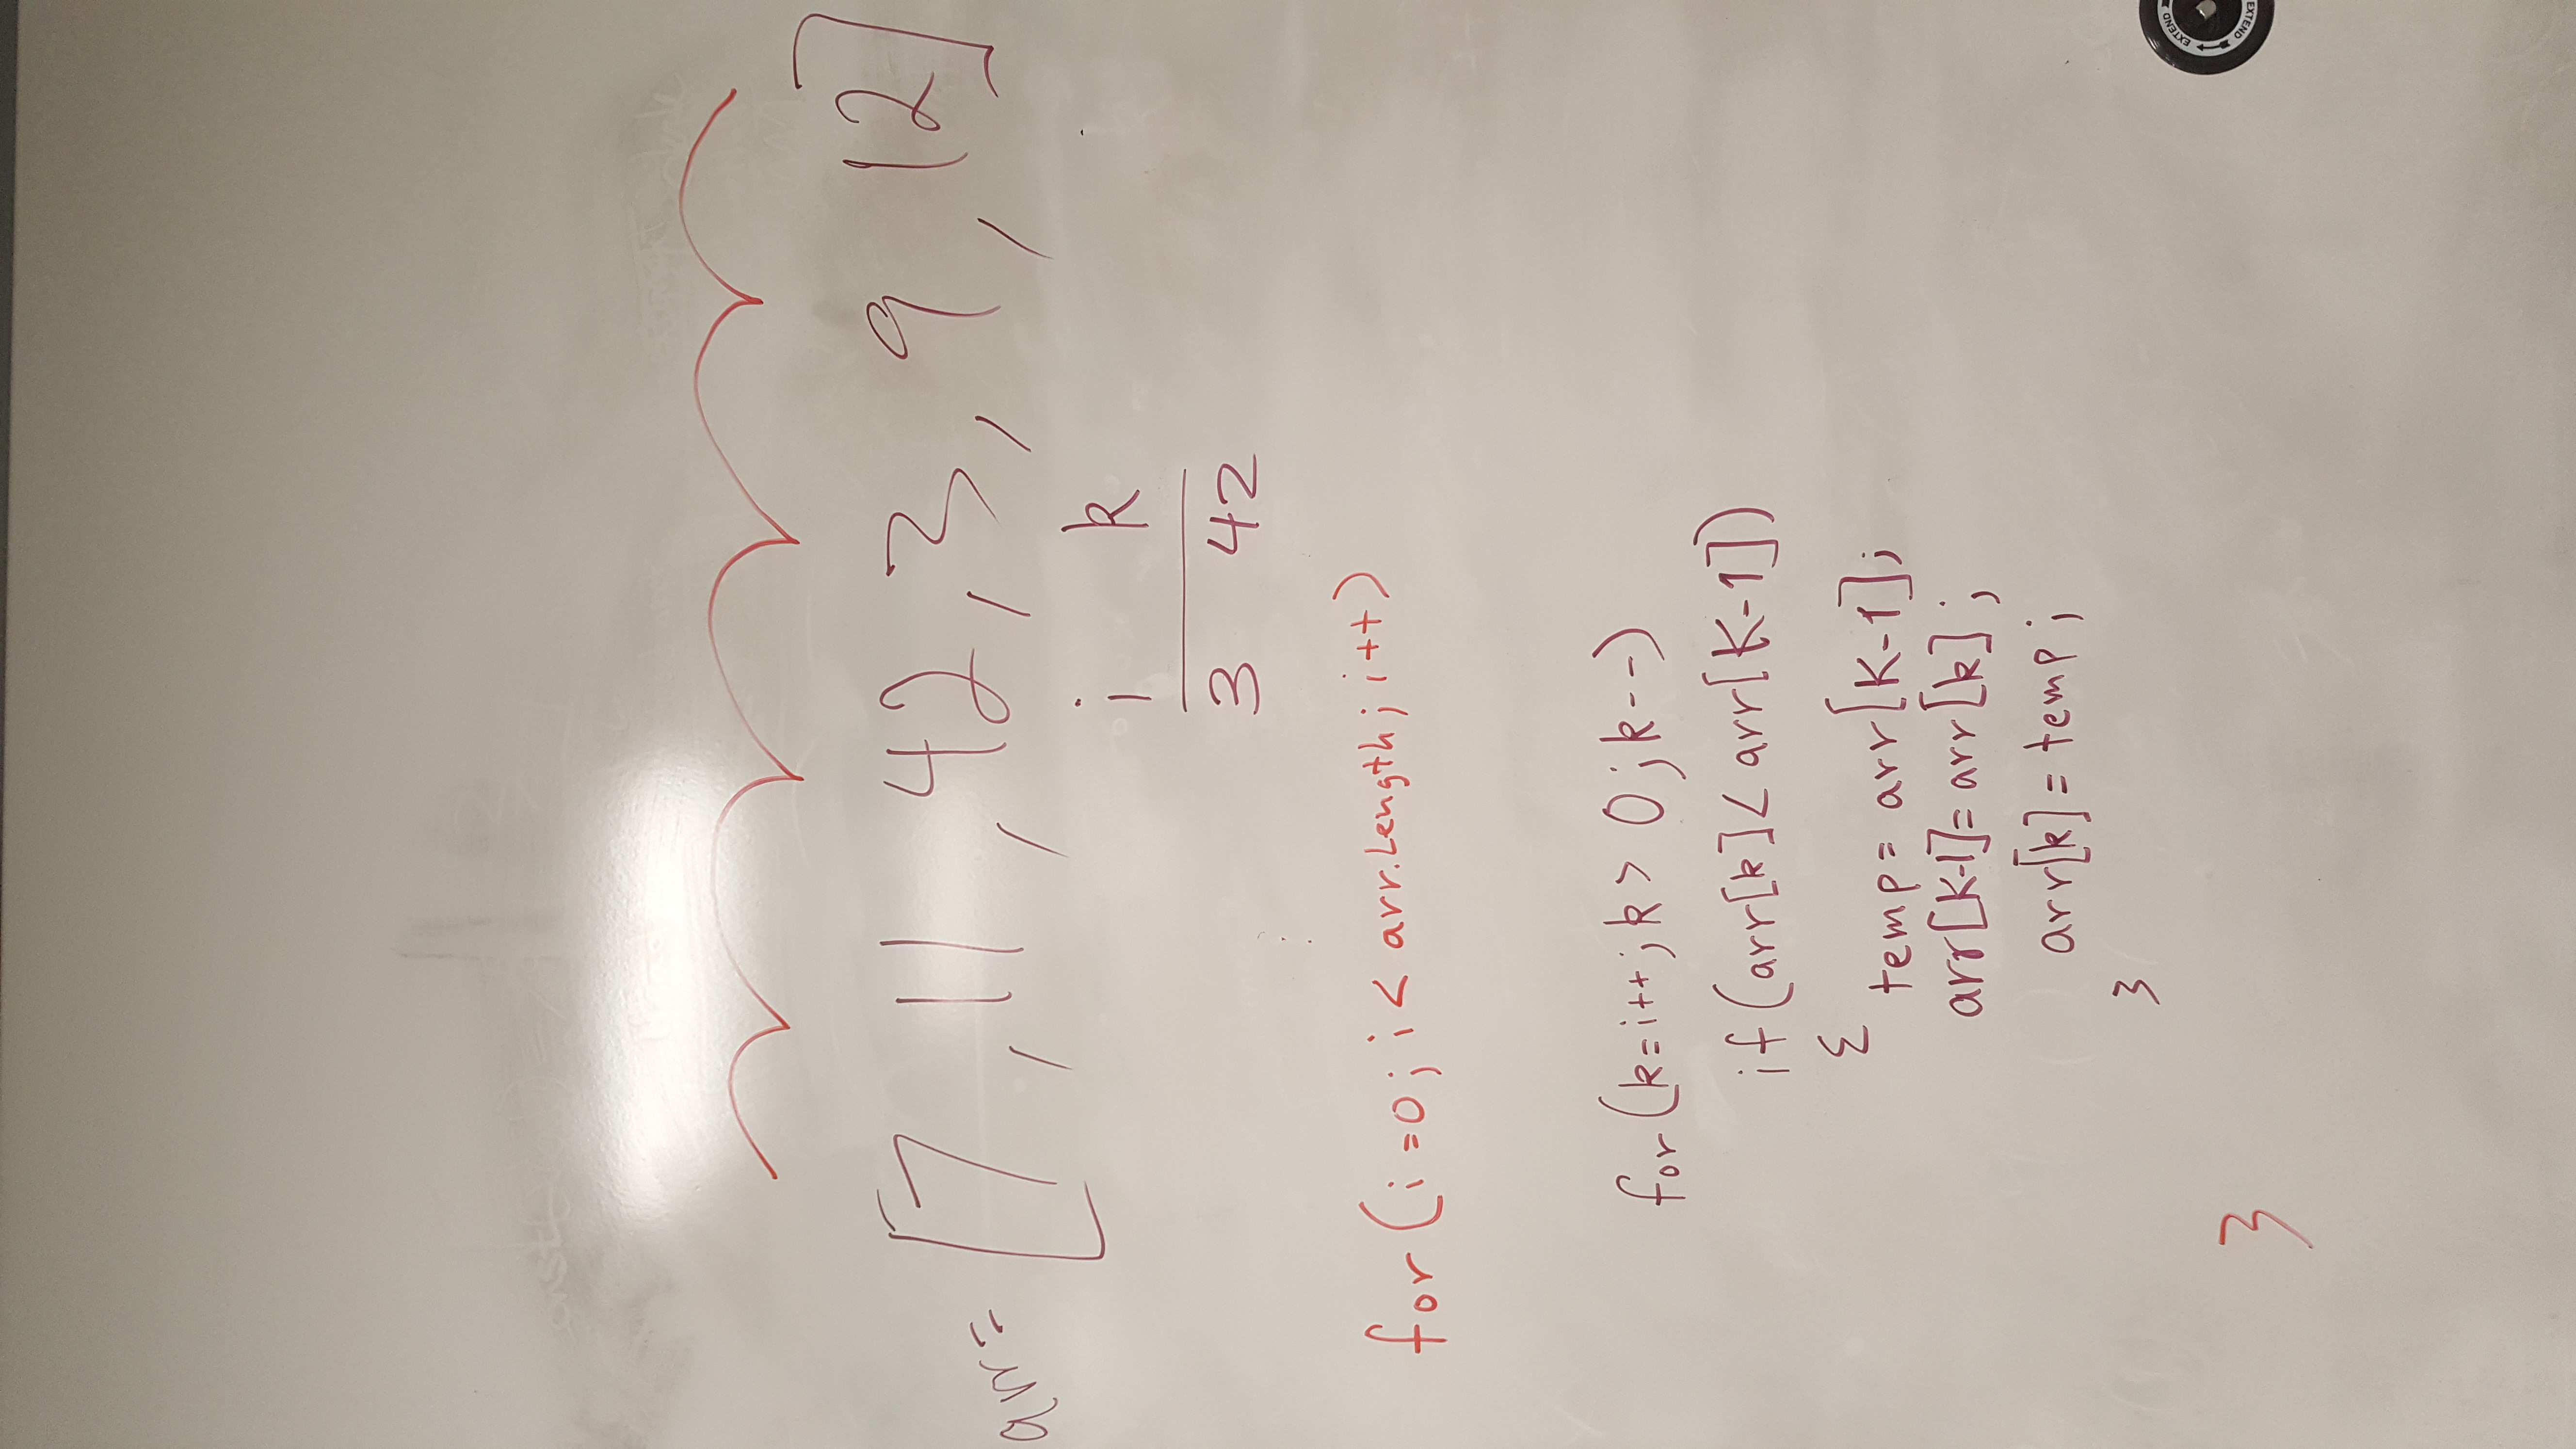 arr= [7, 11, 42, 3, 9, 12]
i k
3 42
for (i=0; i< arr.Length; i++)
for (k=i++; k> 0; k--)
if (arr[k]< arr[K-1])
{
temp= arr[K-1];
arr[K-1]= arr[k];
arr[k]= temp;
}
}
EXTEND
EXTEND